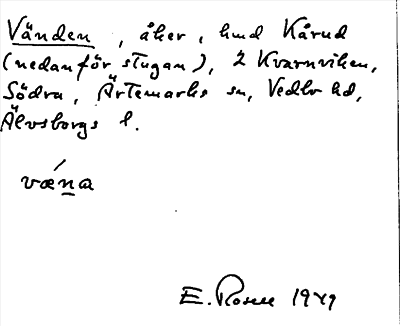 Vänden, åker, hmd Kårud
(nedanför stugan), 2 Kvarnviken,
Södra, Ärtemarks sn, Vedbo hd,
Älvsborgs l.
vǽna
E. Rosell 1949